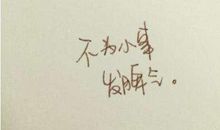 不为小事
发脾气。